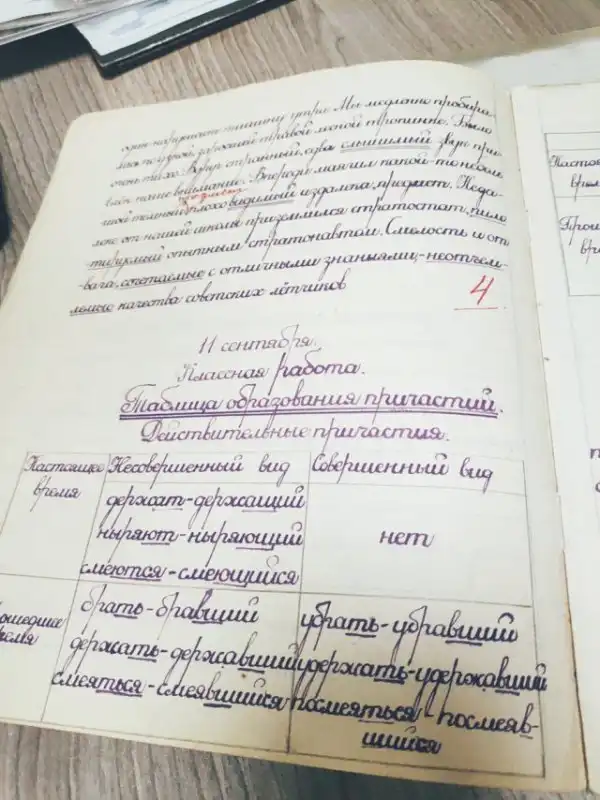 один нарушает тишину утра. Мы медленно пробира-
лись по узкой, заросшей травой лесной тропинке. Было
очень тихо. Вдруг странный, едва слышимый звук при-
влёк наше внимание. Впереди маячил какой-то неболь-
шой темный плохо видимый издалека, предмет. Неда-
леко от нашей школы приземлился стратостат, пило
тируемый опытным стратонавтом. Смелость и от
-вага, сочетаемые с отличными знаниями,-неотъем-
лемые качества советских лётчиков
4
11 сентября.
Классная работа.
Таблица образования причастий.
Действительные причастия.
Настоящее время
Несовершенный вид
Совершенный вид
держат-держащий
ныряют-ныряющий
смеются-смеющийся
нет
ошедшее
ремя
брать-бравший
держать-державший
смеяться-смеявшийся
убрать-убравший
удержать-удержавший
посмеяться-посмеяв-
шийся
Настоя
врем
Прош
вре